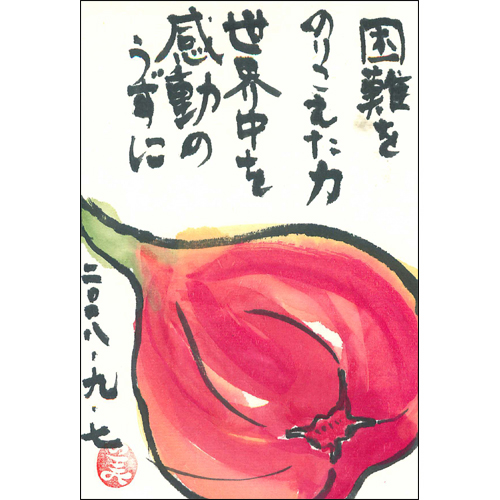 困難を
のりこえた力
世界中を
感動の
うずに
二〇〇八・九・七